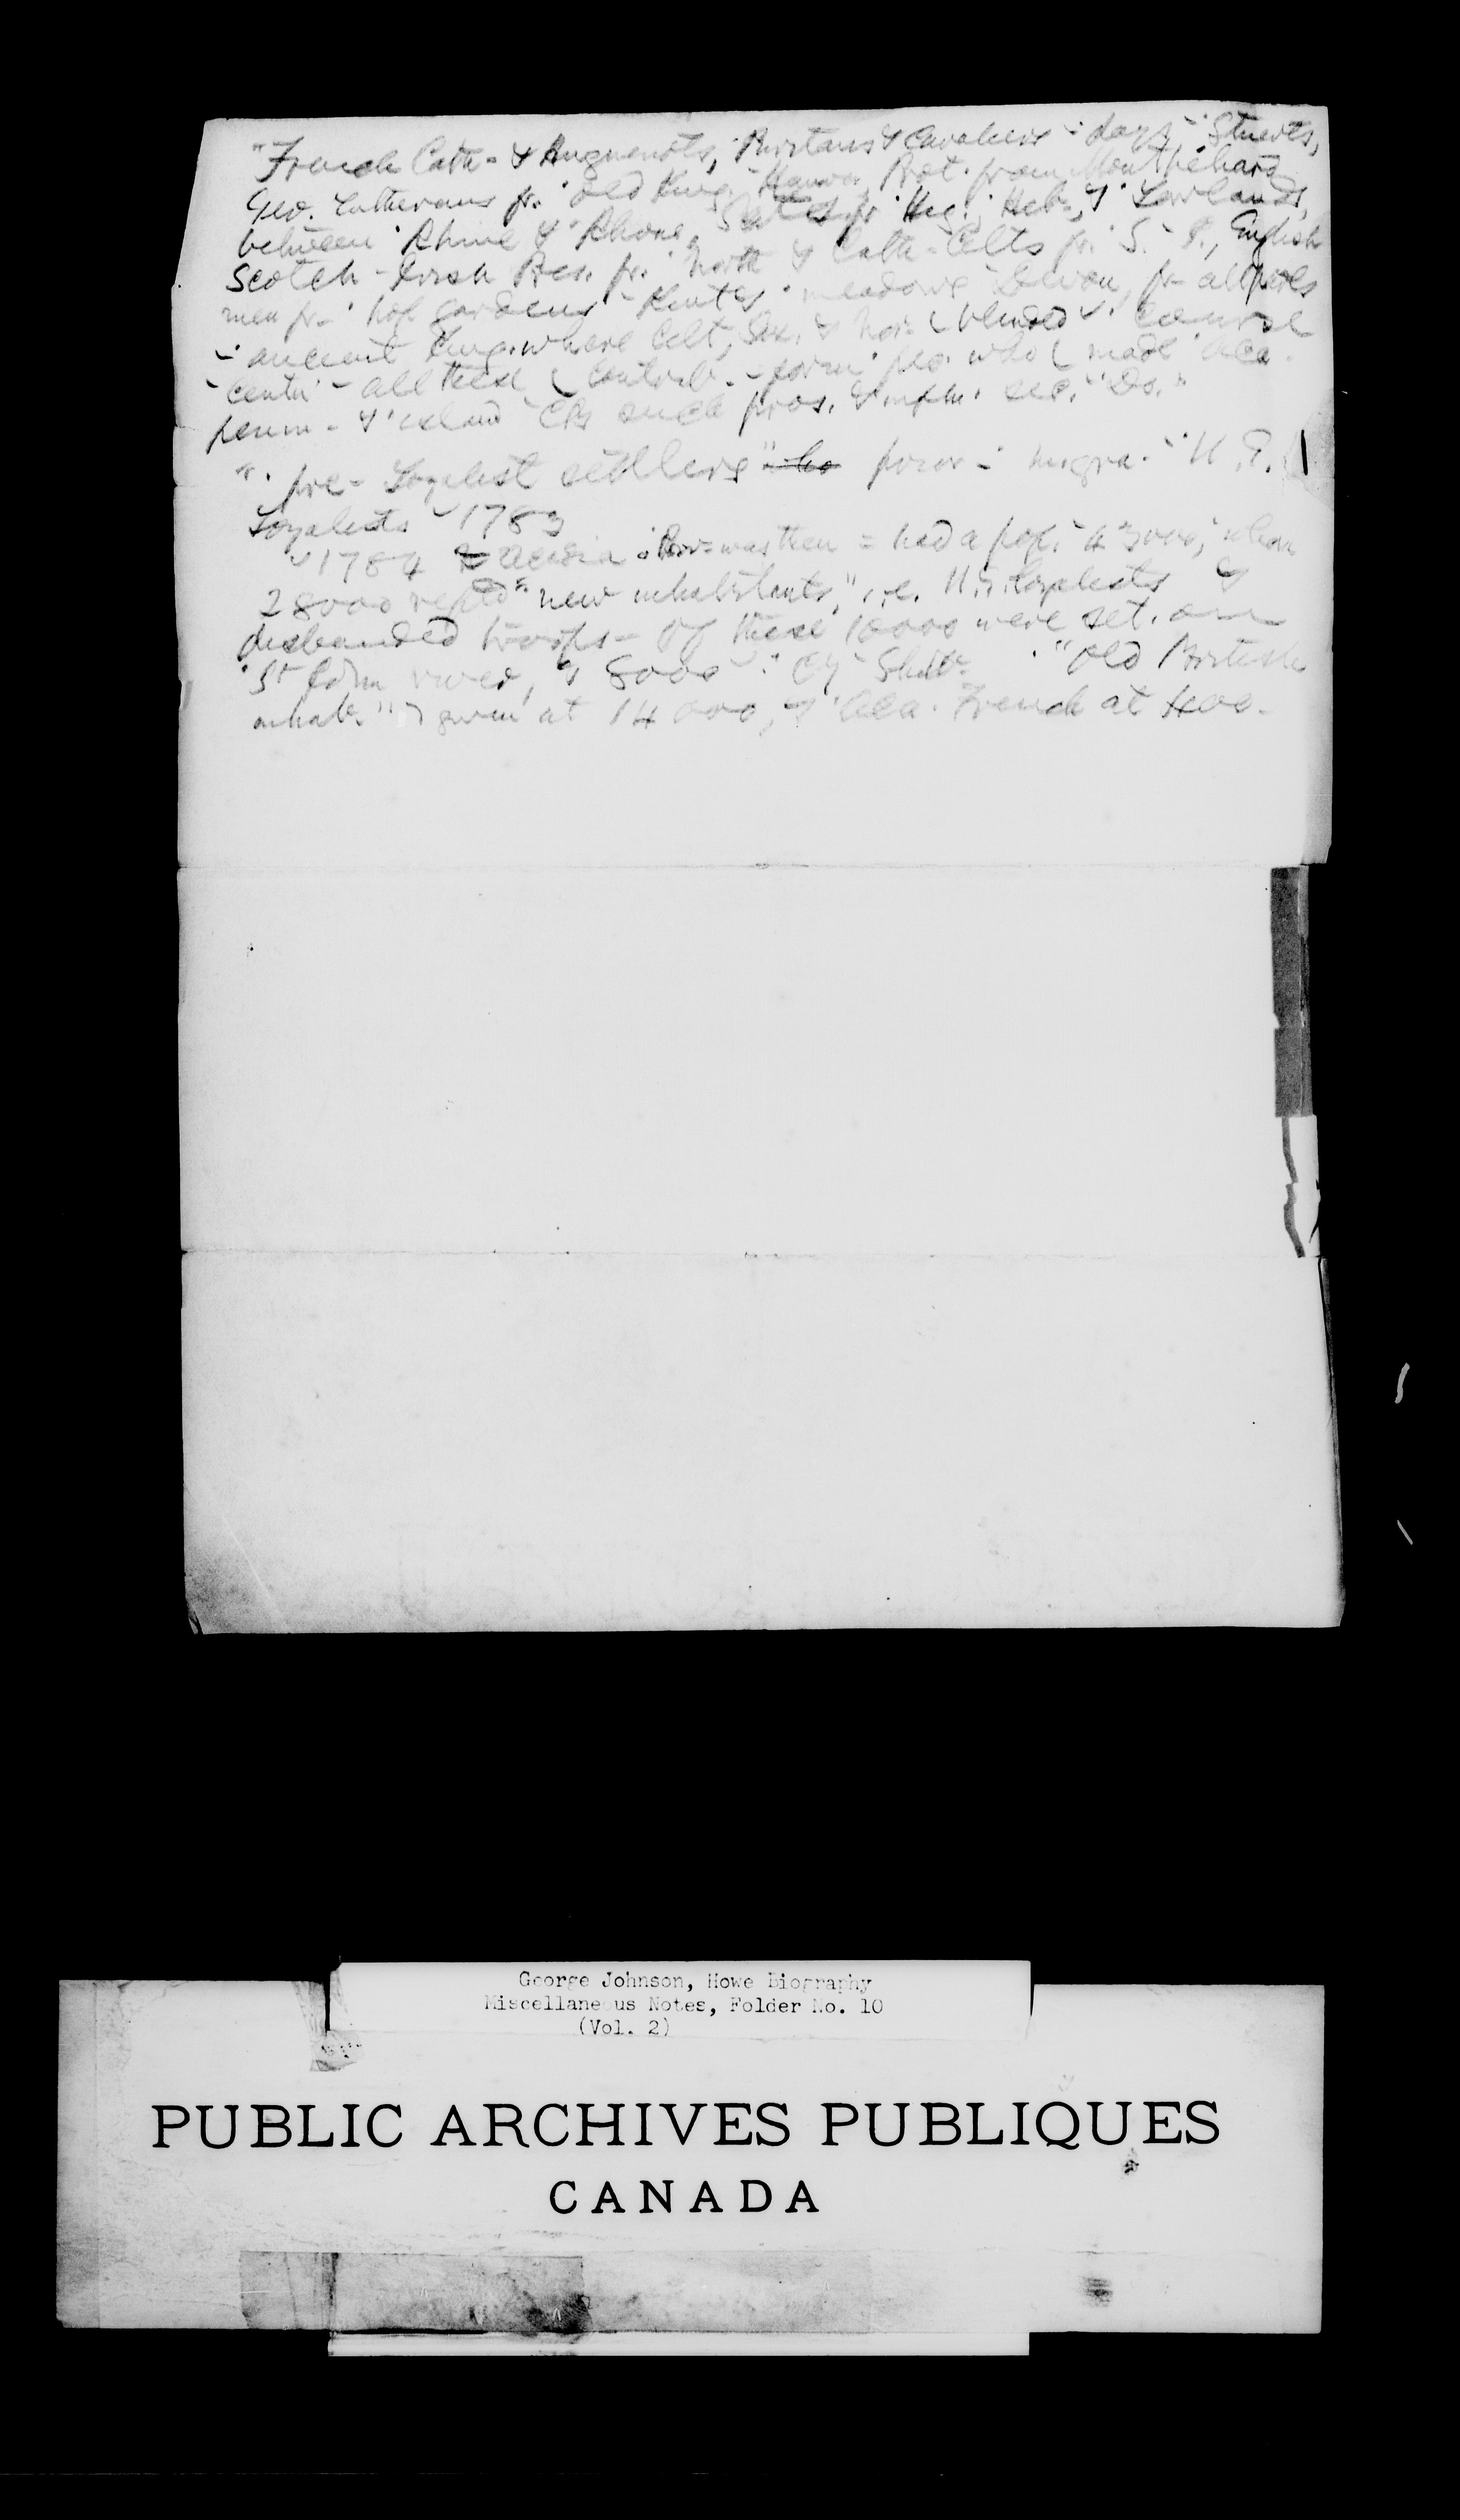 "French Cath - & Huguenots, Puritans & Cavaliers - days - Stuarts,
Ger. Lutherans fr. old King - Hanover, Prot. from Montbeliard
between Rhine & Rhone, fr. Hig., Heb., & Lowlands,
Scotch-Irish Pres. fr. North & Cath-Celts fr. S. & , English
men fr - hop gardens - Kent & meadows - Devon, fr - all parts
- ancient where Celt, Sax. & Nor. blended
- all these contrib. - form peo. who made Aca.
penin - & island - such pros. & sec. "Do."
". pre-Loyalist settlers" prior - migra - U.E.
Loyalists 1783
1784 Acadia was then = had a pop. 43000, whom
28000 "new inhabitants," i.e. U.E. Loyalists &
disbanded troops - Of these 10000 were set. on
St John river, & 8000 "Old British
inhab." given at 14000, & Aca. French at 400-
George Johnson, Howe Biography
Miscellaneous Notes, Folder No. 10
(Vol. 2)
PUBLIC ARCHIVES PUBLIQUES
CANADA